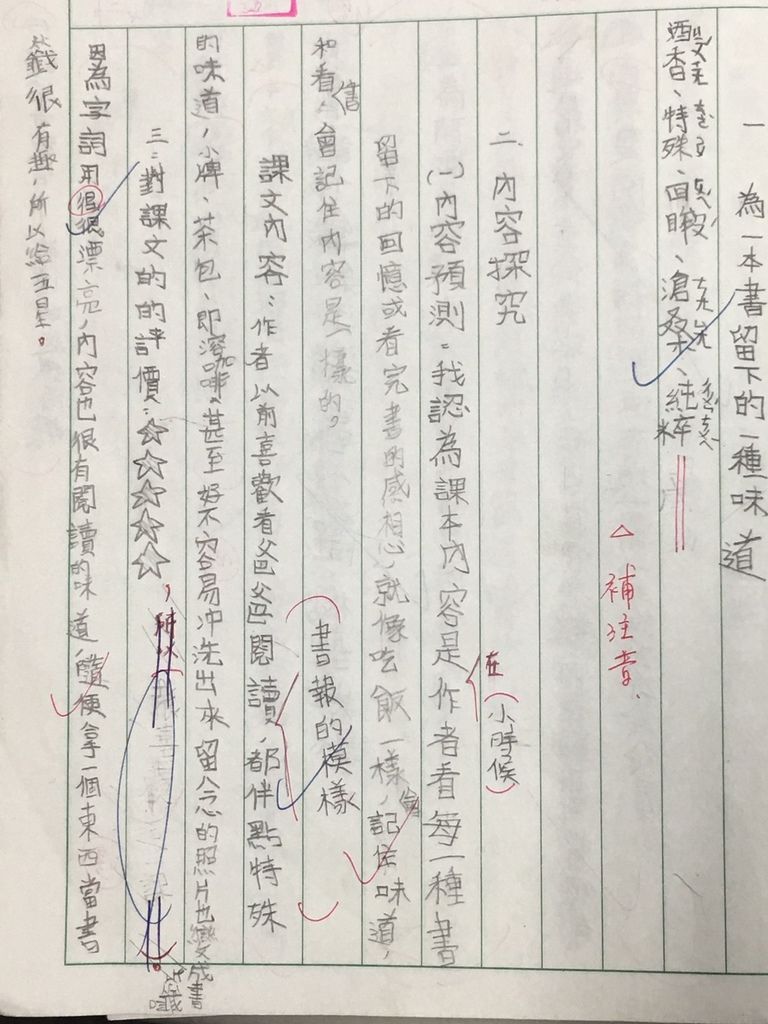 一 為一本書留下的一種味道
醇香、特殊、回眸、滄桑、純粹
△補注音.
二、內容探究
(一)內容預測:我認為課本內容是作者看每一種書
在(小時候)
留下的回憶或看完書的感相心,就像吃飯一樣,會記住味道,
和看書,會記住內容是一樣的。
課文內容:作者以前喜歡看爸爸閱讀,都伴點特殊
書報的模樣
的味道,小牌、茶包、即溶咖啡,甚至好不容易沖洗出來留念的照片也變成書籤
三:對課文的的評價:☆☆☆☆☆,
因為字詞用得很漂亮,內容也很有閱讀的味道,隨便拿一個東西當書
籤很有趣,所以給五星。